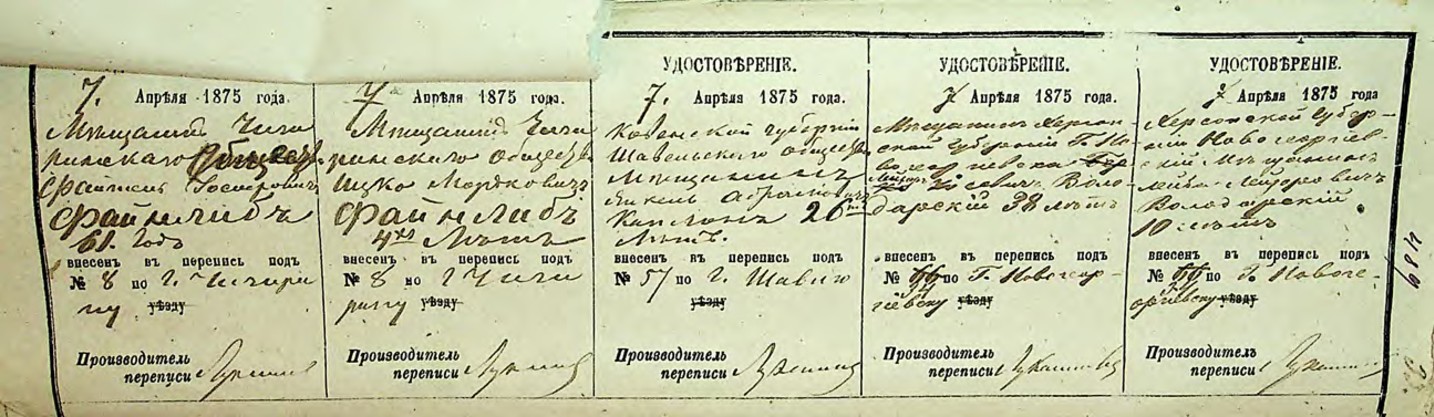 7. Апрѣля 1875 года.
Мѣщанинъ Чиги
ринскаго Обществ.
Файвель
Файнлибъ
61. Годъ
внесенъ въ перепись подъ
№ 8 по г. Чигири
ну уѣзду
Производитель
переписи
7 Апрѣля 1875 года.
Мѣщанинъ Чиги
ринскаго обществ.
Ицко Мордковичъ
Файнлибъ
4хъ Лѣтъ
внесенъ въ перепись подъ
№ 8 по г Чиги
рину уѣзду
Производитель
переписи
УДОСТОВѢРЕНІЕ.
7. Апрѣля 1875 года.
Ковенской губерніи
Шавельскаго обществ.
Мѣщанинъ
Янкель Абрамовичъ
Капланъ 26
Лѣтъ.
внесенъ въ перепись подъ
№ 57 по г. Шавлю
уѣзду
Производитель
переписи
УДОСТОВѢРЕНІЕ.
7 Апрѣля 1875 года.
Мѣщанинъ Херсон-
ской губерніи Г. Но-
вогеоргіевска
Воло-
дарскій 38 лѣтъ
внесенъ въ перепись подъ
№ по Г. Новогеор-
гіевску уѣзду
Производитель
переписи
УДОСТОВѢРЕНІЕ.
7 Апрѣля 1875 года.
Херсонской губер-
ніи Новогеоргіев-
скій Мѣщанинъ
Лейба Лейзоровичъ
Володарскій
10 лѣтъ
внесенъ въ перепись подъ
№ по Г. Новоге-
оргіевску уѣзду
Производитель
переписи